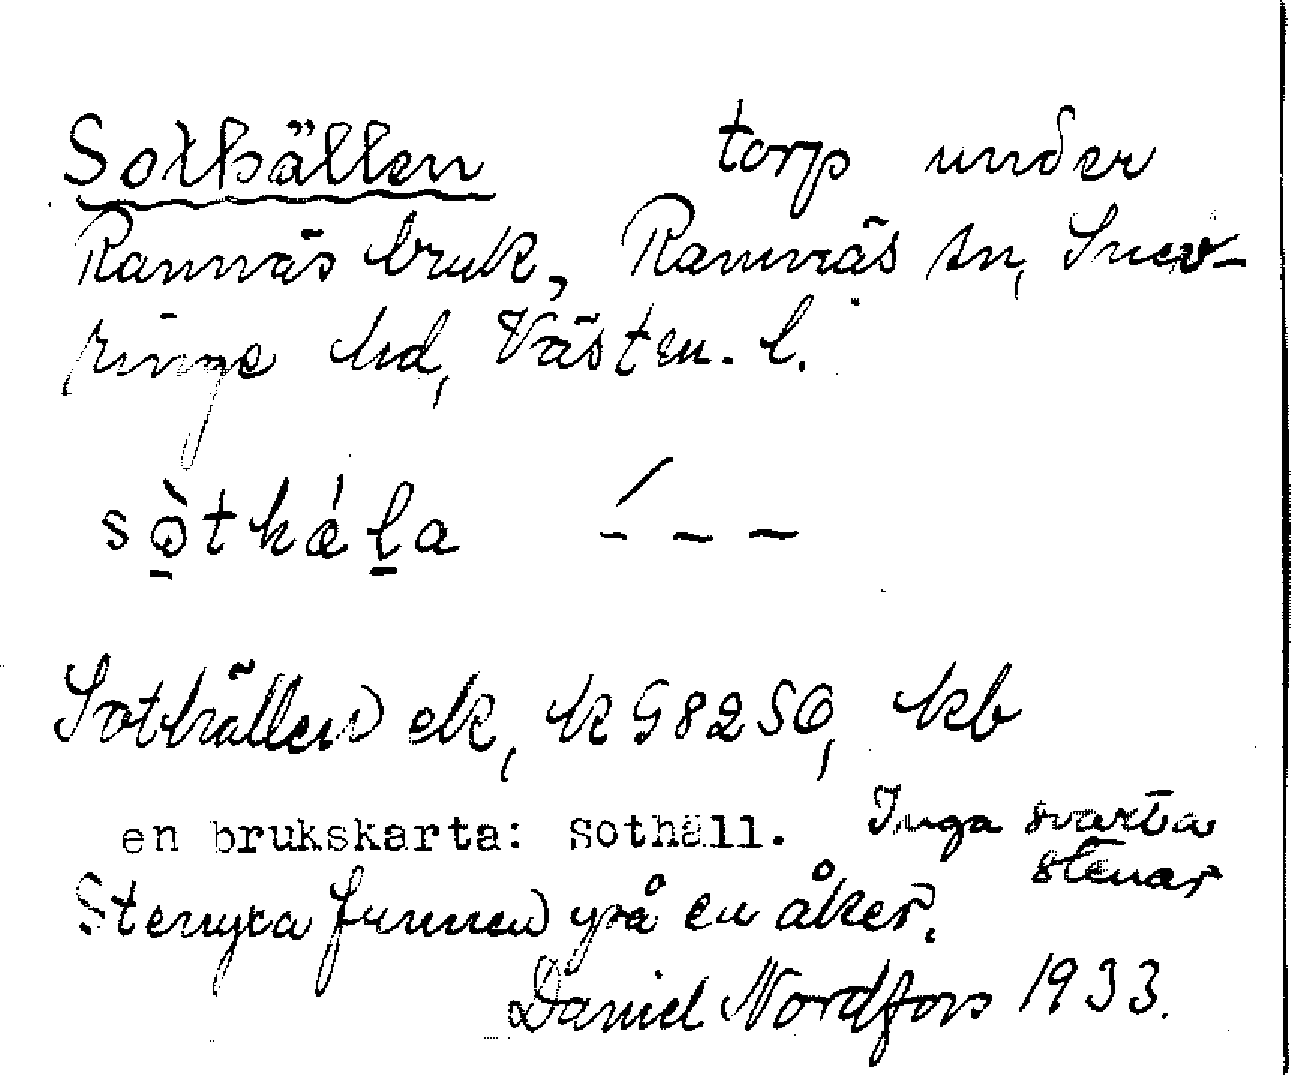 Sothällen torp under
Ramnäs bruk, Ramnäs sn, Snev-
ringe hd, Västm. l.
sòthá̤la
Sothällen ek, k G 8250, kb
en brukskarta: Sothäll. Inga svarta
stenar
Stenyxa funnen på en åker.
Daniel Nordfors 1933.